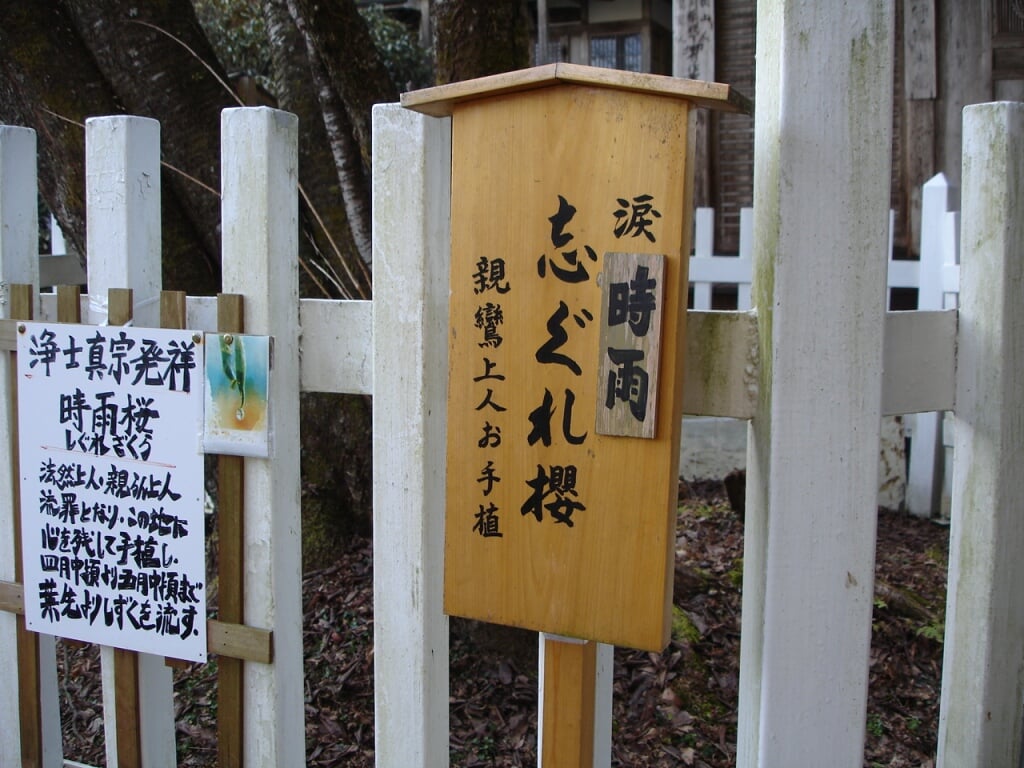 涙
時雨
志ぐれ櫻
親鸞上人お手植
浄土真宗発祥
時雨桜
しぐれざくら
法然上人・親らん上人
流罪となり・この地に
心を残して手植し・
四月中頃より五月中頃まで
葉先よりしずくを流す・